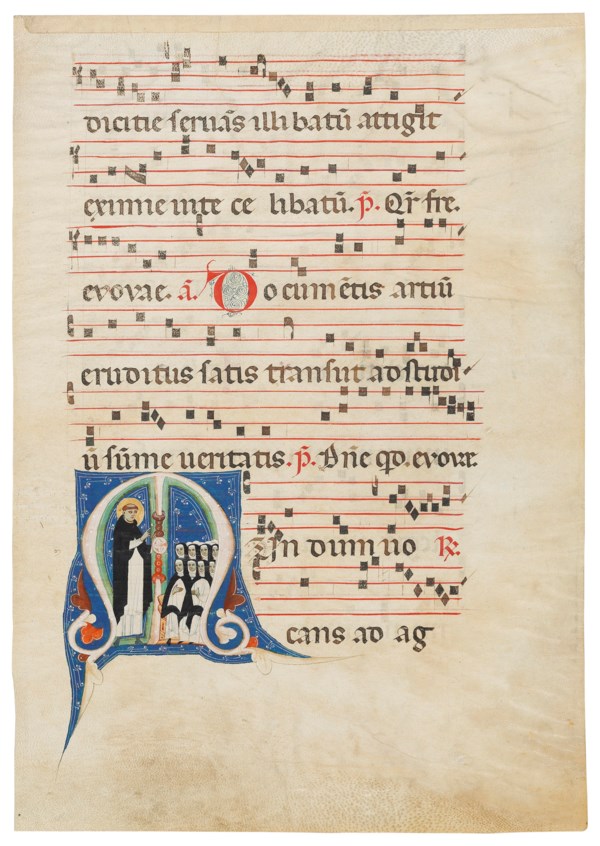 dicitie seruās illibatū attigit
eximie uite ce libatū. p̄. Qr̄ fre.
evovae. ā. Documētis artiū
eruditus satis transiit ad studi
ū sūme ueritatis. p̄. Dn̄e qd. evovae.
Mun dum uo R̶.
cans ad ag